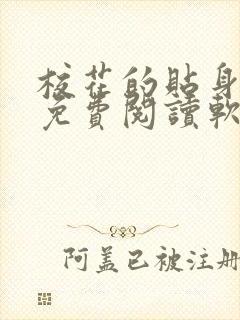 校花的貼身
免費閱讀軟
阿蓋已被注册